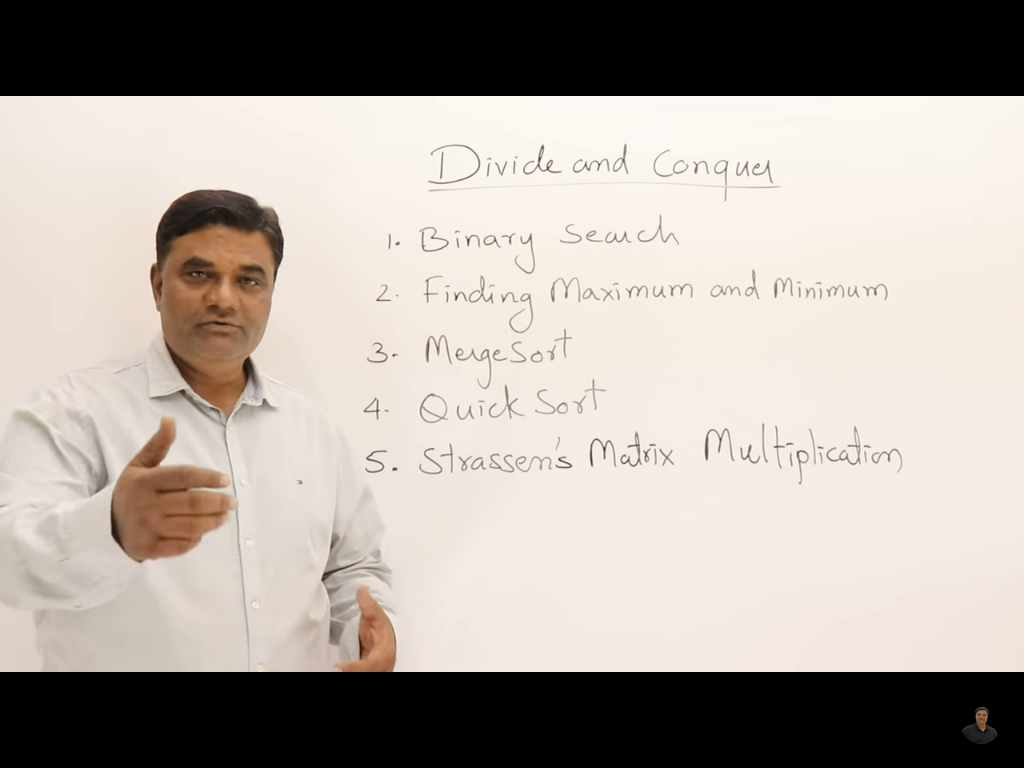 Divide and Conquer
1. Binary Search
2. Finding Maximum and Minimum
3. MergeSort
4. QuickSort
5. Strassen's Matrix Multiplication